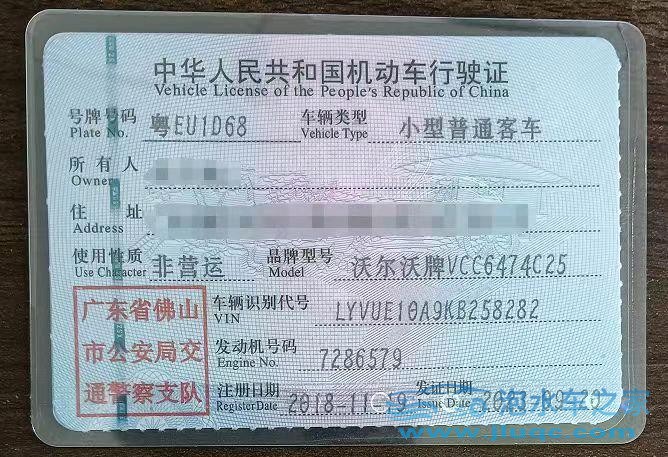 中华人民共和国机动车行驶证
Vehicle License of the People's Republic of China
号牌号码 粤EU1D68 车辆类型 小型普通客车
Plate No. Vehicle Type
所有人
Owner
住址
Address
使用性质 非营运 品牌型号 沃尔沃牌VCC6474C25
Use Character Model
广东省佛山 车辆识别代号 LYVUE10A9KB258282
VIN
市公安局交 发动机号码 7286579
Engine No.
通警察支队 注册日期 2018-11- 发证日期
Register Date Issue Date
水车之家